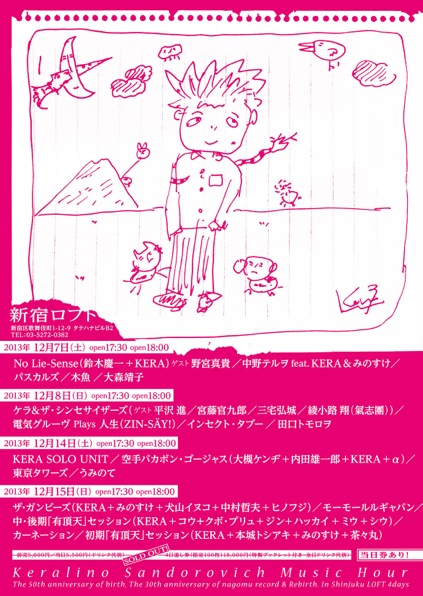 新宿ロフト
新宿区歌舞伎町1-12-9 タテハナビルB2
TEL:03-5272-0382
2013年 12月7日(土) open17:30 open18:00
No Lie-Sense(鈴木慶一+KERA)ゲスト 野宮真貴/中野テルヲ feat. KERA&みのすけ/
パスカルズ/木魚/大森靖子
2013年 12月8日(日) open17:30 open18:00
ケラ&ザ・シンセサイザーズ(ゲスト 平沢 進/宮藤官九郎/三宅弘城/綾小路 翔(氣志團))/
電気グルーヴ Plays 人生(ZIN-SÄY!)/インセクト・タブー/田口トモロヲ
2013年 12月14日(土) open17:30 open18:00
KERA SOLO UNIT/空手バカボン・ゴージャス(大槻ケンヂ+内田雄一郎+KERA+α)/
東京タワーズ/うみのて
2013年 12月15日(日) open17:30 open18:00
ザ・ガンビーズ(KERA+みのすけ+犬山イヌコ+中村哲夫+ヒノフジ)/モーモールルギャバン/
中・後期「有頂天」セッション(KERA+コウ+クボ・ブリュ+ジン+ハッカイ+ミウ+シウ)/
カーネーション/初期「有頂天」セッション(KERA+本城トシアキ+みのすけ+茶々丸)
前売5,000円/当日5,500円(ドリンク代別) SOLD OUT! 4日通し券(限定100枚)18,000円(特製ブックレット付き・全日ドリンク代別) 当日券あり!
Keralino Sandorovich Music Hour
The 50th anniversary of birth. The 30th anniversary of nagomu record & Rebirth. In Shinjuku LOFT 4days